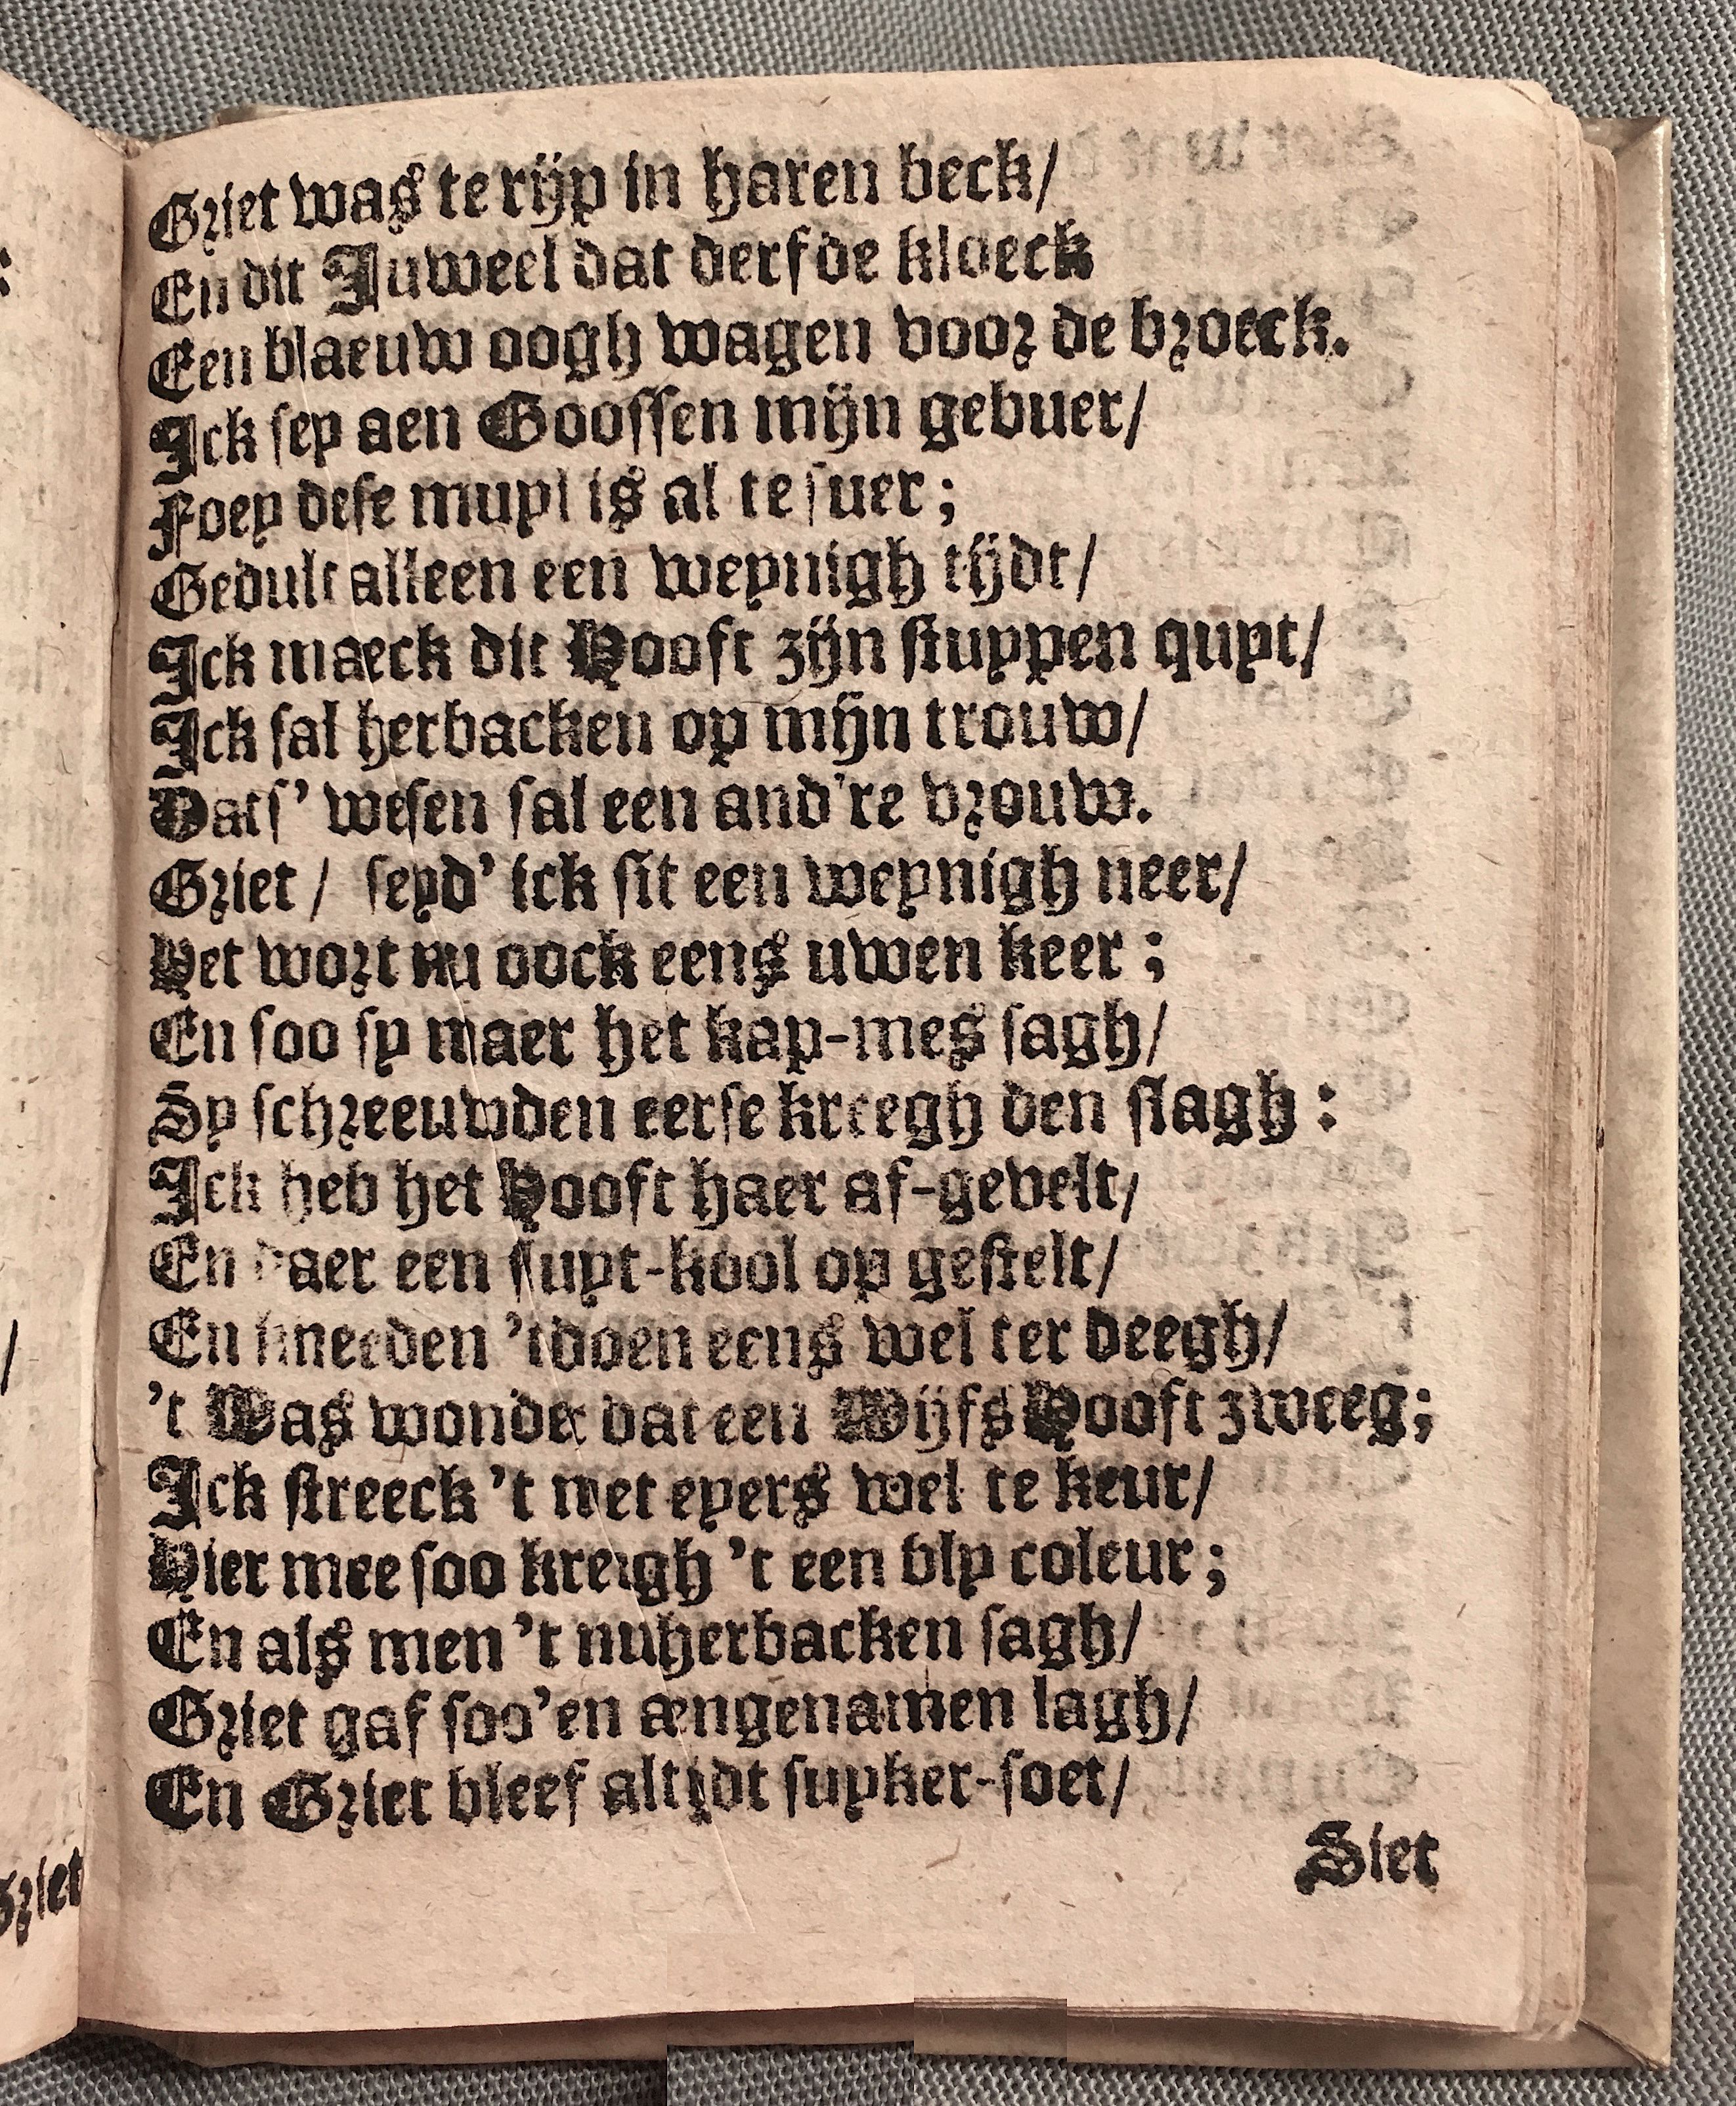 Griet was te rijp in haren beck/
En dit Juweel dat derf de kloeck
Een blaeuw oogh wagen voor de broeck.
Ick sey aen Goossen mijn gebuer/
Foey dese muyl is al te suer;
Gedult alleen een weynigh tijdt/
Ick maeck dit Hooft zijn stuypen quyt/
Ick sal herbacken op mijn trouw/
Dats' wesen sal een and're vrouw.
Griet/ seyd' ick sit een weynigh neer/
Het wort nu oock eens uwen keer;
En soo sy maer het kap-mes sagh/
Sy schreeuwden eerse kreegh den slagh:
Ick heb het Hooft haer af-gevelt/
En daer een sluyt-kool op gestelt/
En kneeden 't doen eens wel ter deegh/
't Was wonder dat een Wijfs Hooft zweeg;
Ick streeck 't met eyers wel te keur/
Hier mee soo kreigh 't een bly coleur;
En als men 't nu herbacken sagh/
Griet gaf soo'en ængenamen lagh/
En Griet bleef altijdt suyker-soet/
Siet
Griet